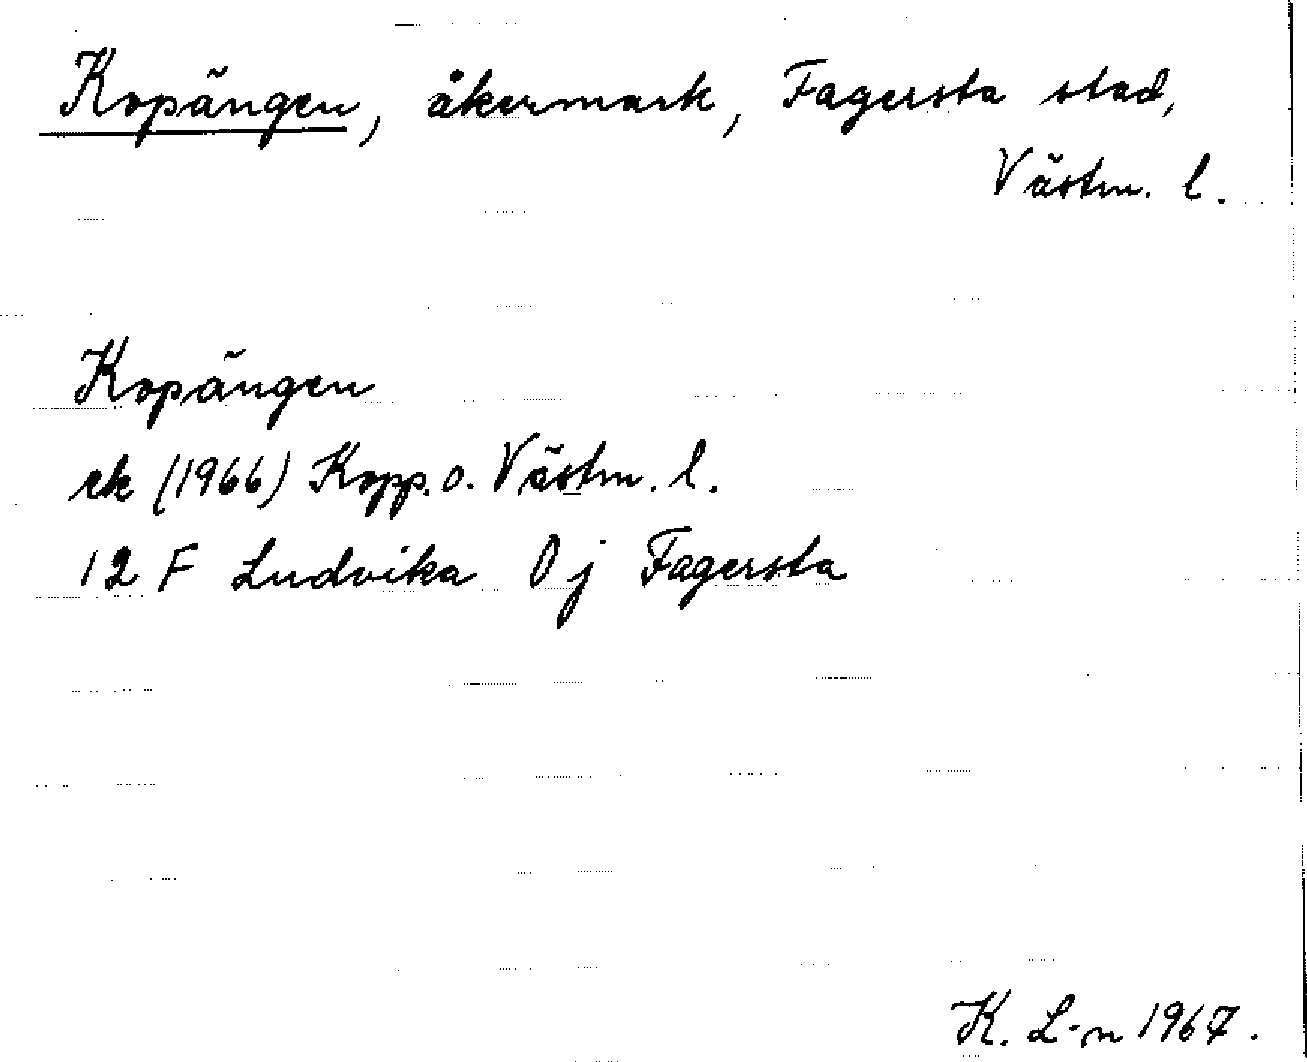 Kopängen, åkermark, Fagersta stad,
Västm. l.
Kopängen
ek (1966) Kopp. o. Västm. l.
12 F Ludvika 0 j Fagersta
K. L-n 1967.